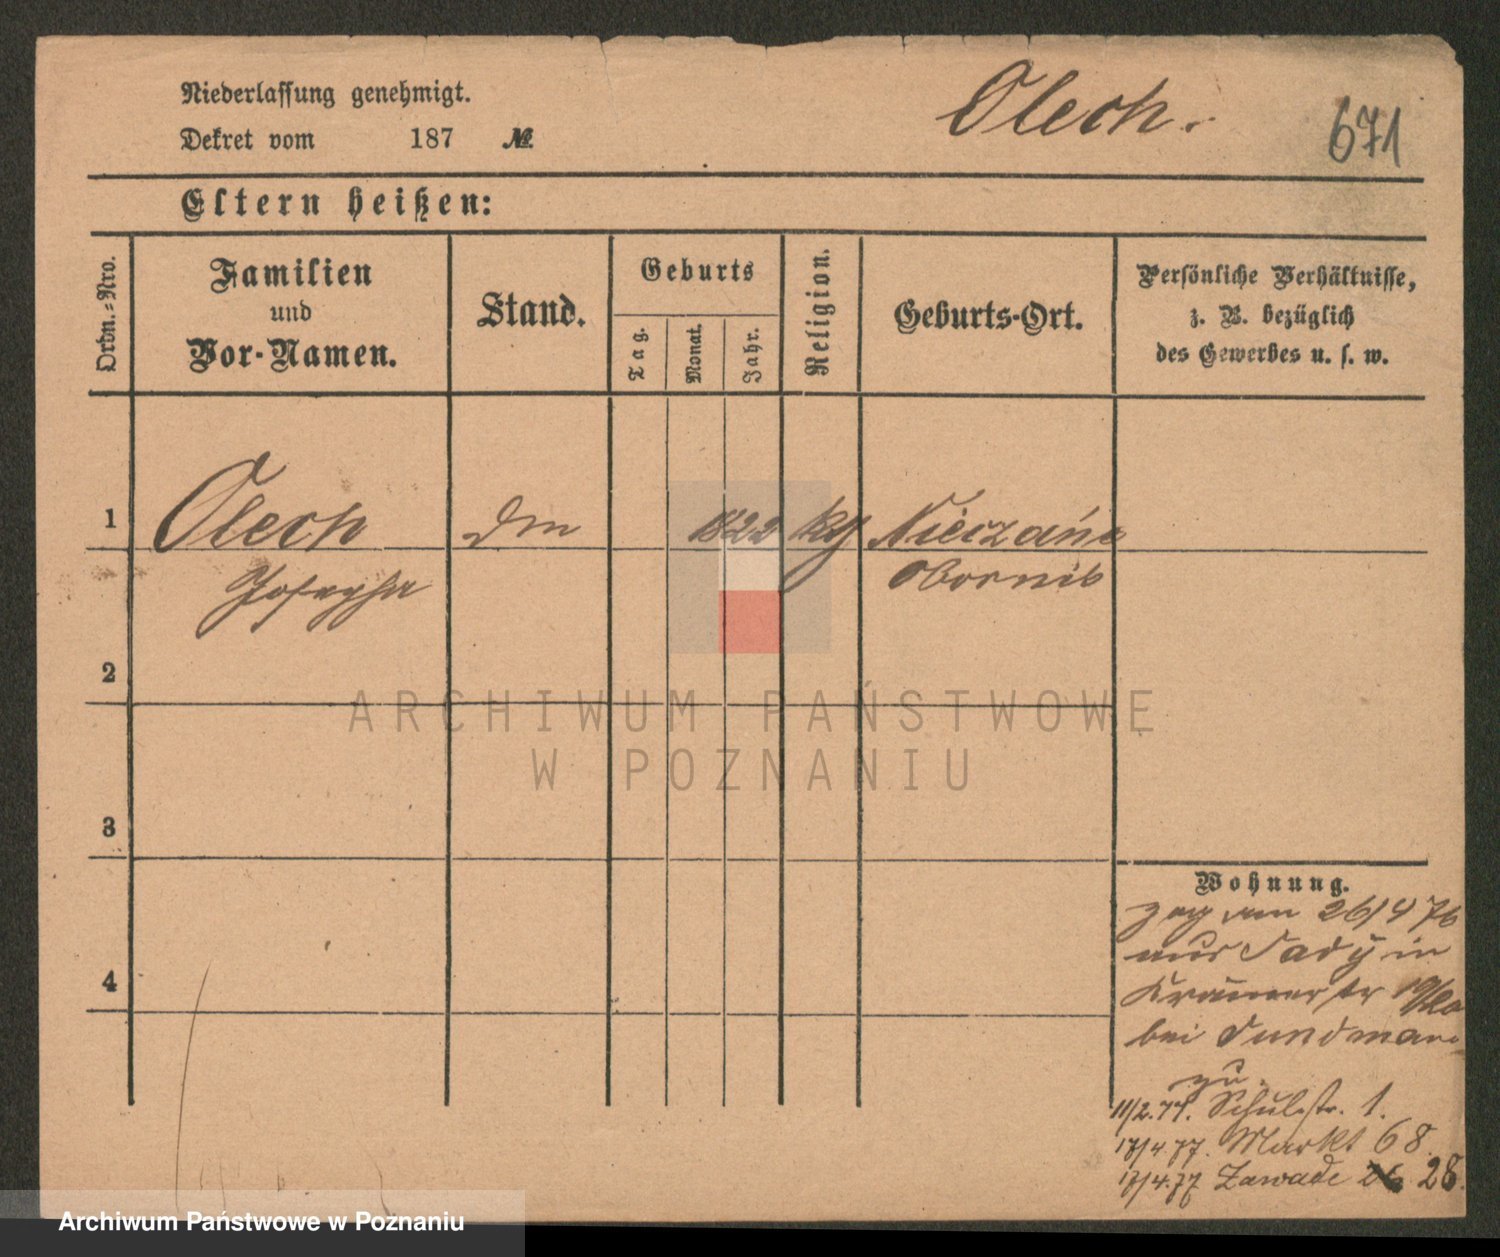 Niederlassung genehmigt.
Dekret vom 187 №
Olech.
671
Eltern heißen:
Ordn.-Nro.
Familien
und
Vor-Namen.
Stand.
Geburts
Tag.
Monat.
Jahr.
Religion.
Geburts-Ort.
Persönliche Verhältnisse,
z. B. bezüglich
des Gewerbes u. s. w.
1
Olech
1822
Obornik
Josepha
2
ARCHIWUM PAŃSTWOWE
W POZNANIU
3
Wohnung.
zog am 26/4 76
aus Sady in
bei
zu.
4
11/2.77. Schulstr. 1.
17/4.77. Markt 68.
17/4.77 Zawade 28.
Archiwum Państwowe w Poznaniu